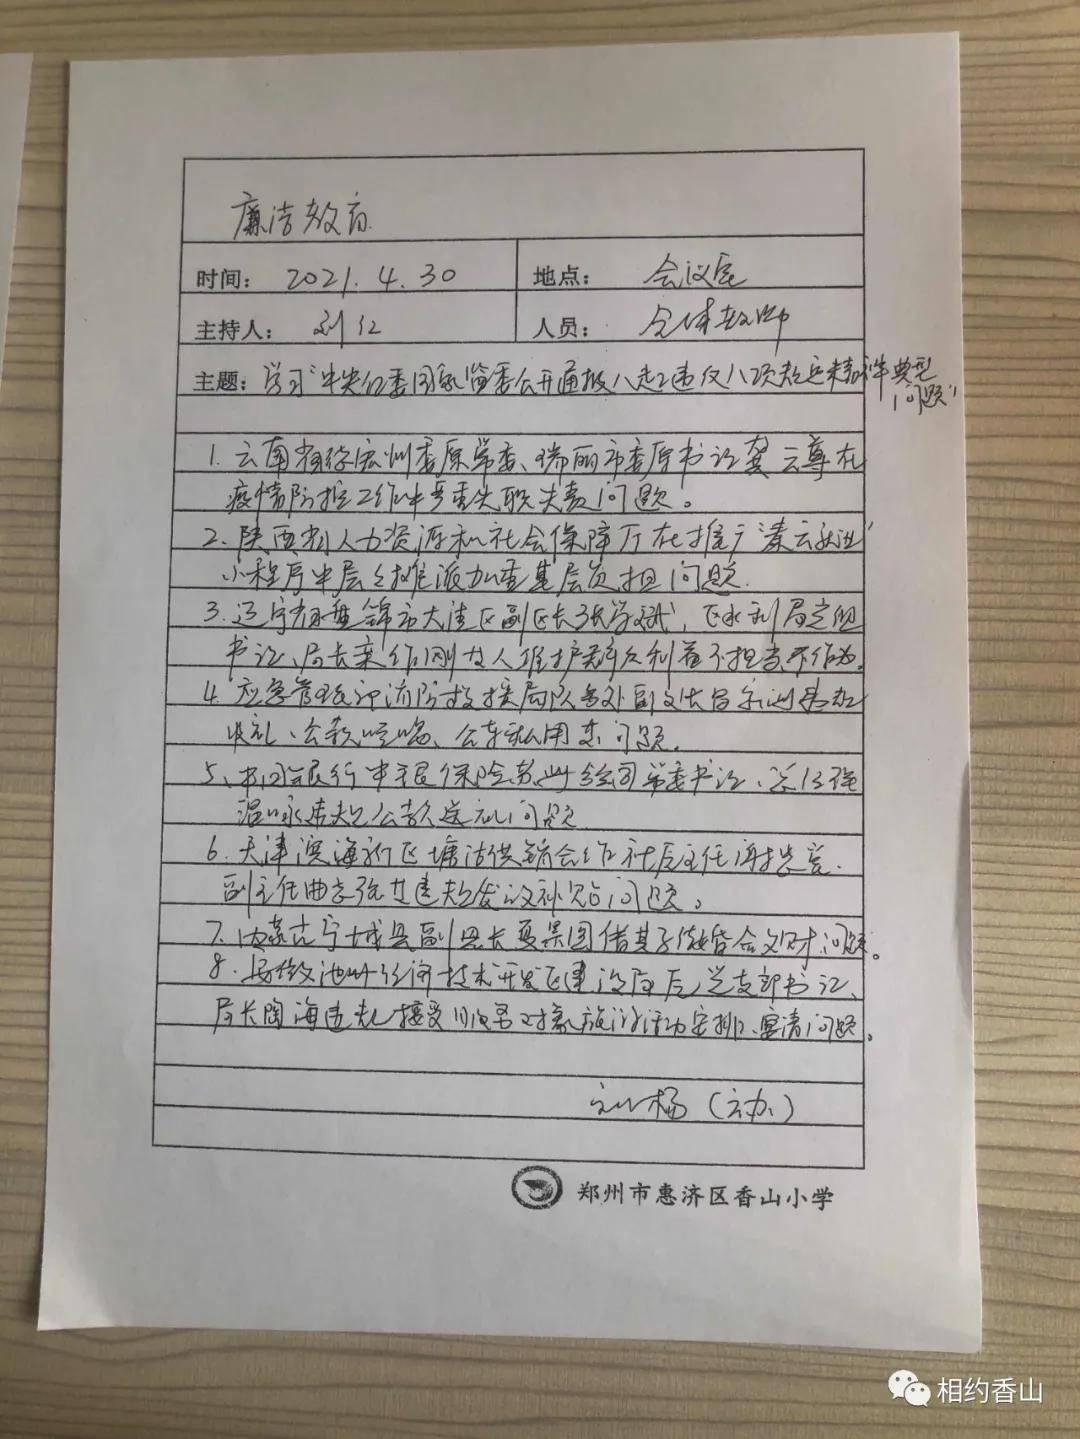 廉洁教育
时间： 2021.4.30 地点： 会议室
主持人： 刘红 人员： 全体教师
主题： 学习"中央纪委国家监委公开通报八起违反八项规定精神典型
问题"
1. 云南省德宏州委原常委、瑞丽市委原书记龚云尊在
疫情防控工作中严重失职失责问题。
2. 陕西省人力资源和社会保障厅在推广"秦云就业"
小程序中层层摊派加重基层负担问题.
3. 辽宁省盘锦市大洼区副区长张学斌, 区水利局党组
书记、局长栾作刚 人维护群众利益不担当不作为.
4. 应急管理 消防救援局 处副处长
收礼、公款吃喝、公车私用 问题.
5、中国银行中银保险苏州分公司党委书记、总经理
温咏 违规公款送礼问题
6. 天津滨海新区塘沽供销合作社 主任
副主任曲孝 违规发放补贴问题。
7. 内蒙古宁城县副县长夏景图借其子 婚 敛财问题。
8. 安徽池州经济技术开发区建设 局 党支部书记、
局长陶海违规接受 服务对象旅游活动安排、宴请问题。
刘杨
郑州市惠济区香山小学
相约香山